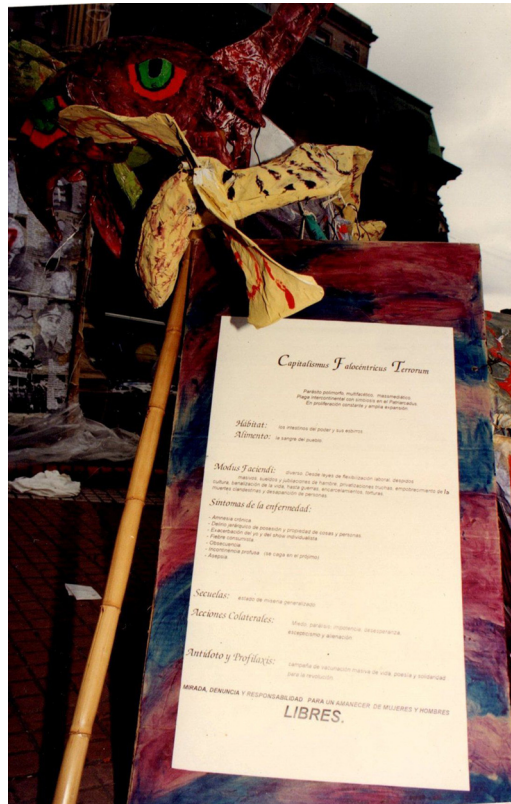 Capitalismus Falocéntricus Terrorum
Parásito polimorfo, multifacético, massmediático.
Plaga intercontinental con simbiosis en el Patriarcalus.
En proliferación constante y amplia expansión.
Hábitat: los intestinos del poder y sus esbirros.
Alimento: la sangre del pueblo.
Modus Faciendi: diverso. Desde leyes de flexibilización laboral, despidos
masivos, sueldos y jubilaciones de hambre, privatizaciones truchas, empobrecimiento de la
cultura, banalización de la vida, hasta guerras, encarcelamientos, torturas,
muertes clandestinas y desaparición de personas.
Síntomas de la enfermedad:
- Amnesia crónica
- Delirio jerárquico de posesión y propiedad de cosas y personas.
- Exacerbación del yo y del show individualista.
- Fiebre consumista.
- Obsecuencia.
- Incontinencia profusa (se caga en el prójimo)
Secuelas: estado de miseria generalizado
Acciones Colaterales: Miedo, parálisis, impotencia, desesperanza,
escepticismo y alienación.
Antídoto y Profilaxis: campaña de vacunación masiva de vida, poesía y solidaridad
para la revolución.
MIRADA, DENUNCIA Y RESPONSABILIDAD PARA UN AMANECER DE MUJERES Y HOMBRES
LIBRES.